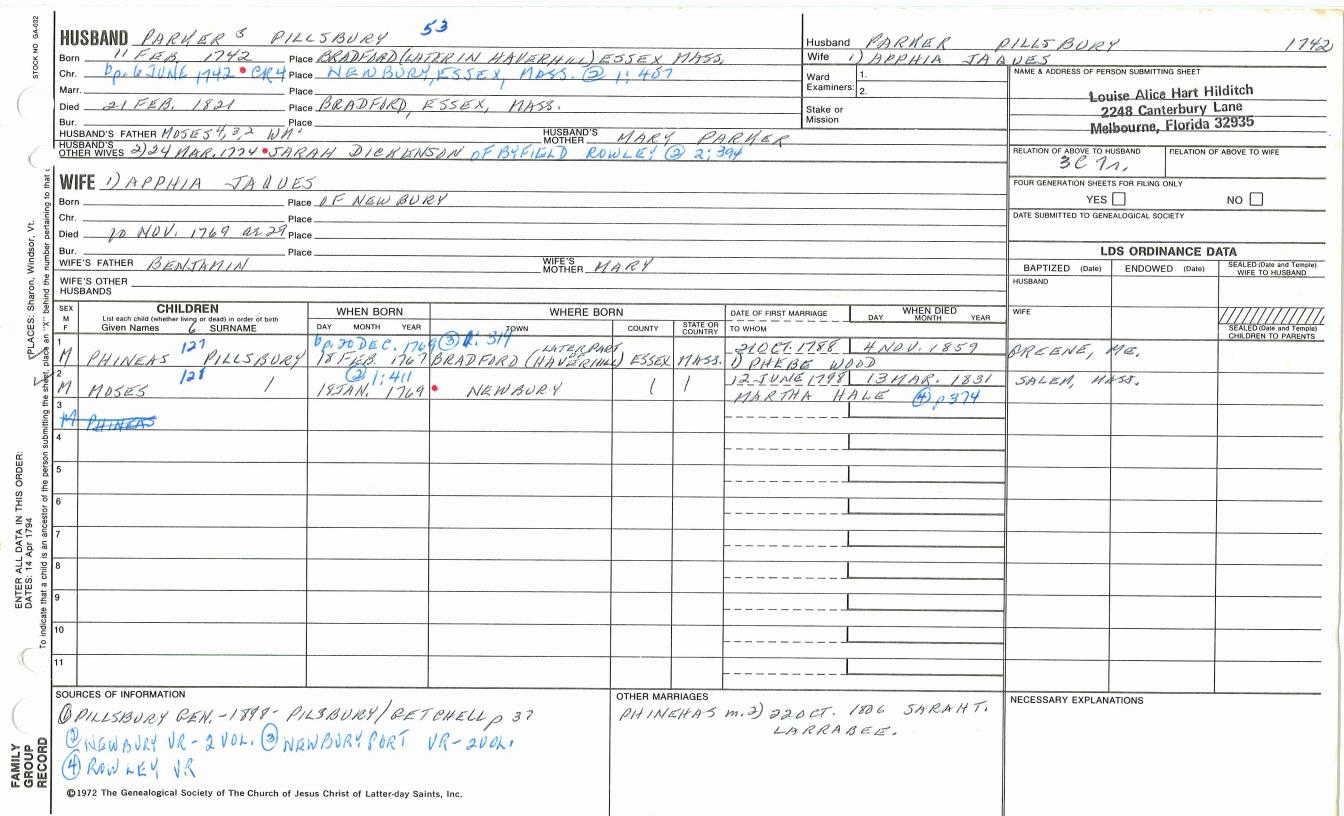 STOCK NO. GA-032
53
HUSBAND PARKER 5 PILLSBURY
Born 11 FEB. 1742 Place BRADFORD (LATER IN HAVERHILL) ESSEX MASS.
Chr. bp. 6 JUNE 1742 • CR4 Place NEWBURY, ESSEX, MASS. ② 1:407
Marr. Place
Died 21 FEB. 1821 Place BRADFORD, ESSEX, MASS.
Bur. Place
HUSBAND'S FATHER MOSES 4,3,2 WM¹ HUSBAND'S MOTHER MARY PARKER
HUSBAND'S OTHER WIVES 2) 24 MAR. 1774 • SARAH DICKENSON OF BYFIELD ROWLEY ② 2:394
Husband PARKER PILLSBURY 1742
Wife 1) APPHIA JAQUES
Ward Examiners: 1.
2.
Stake or Mission
NAME & ADDRESS OF PERSON SUBMITTING SHEET
Louise Alice Hart Hilditch
2248 Canterbury Lane
Melbourne, Florida 32935
RELATION OF ABOVE TO HUSBAND RELATION OF ABOVE TO WIFE
3C
FOUR GENERATION SHEETS FOR FILING ONLY
YES NO
DATE SUBMITTED TO GENEALOGICAL SOCIETY
WIFE 1) APPHIA JAQUES
Born Place OF NEWBURY
Chr. Place
Died 10 NOV. 1769 ae 29 Place
Bur. Place
WIFE'S FATHER BENJAMIN WIFE'S MOTHER MARY
WIFE'S OTHER HUSBANDS
LDS ORDINANCE DATA
BAPTIZED (Date) ENDOWED (Date) SEALED (Date and Temple) WIFE TO HUSBAND
HUSBAND
WIFE
SEALED (Date and Temple) CHILDREN TO PARENTS
SEX M F
CHILDREN
List each child (whether living or dead) in order of birth
Given Names 6 SURNAME
WHEN BORN
DAY MONTH YEAR
WHERE BORN
TOWN COUNTY STATE OR COUNTRY
DATE OF FIRST MARRIAGE
TO WHOM
WHEN DIED
DAY MONTH YEAR
1 127 bp. 20 DEC. 1769 ③ 1:314 LATER PART 21 OCT. 1788 4 NOV. 1859
M PHINEAS PILLSBURY 18 FEB. 1767 BRADFORD (HAVERHILL) ESSEX MASS. 1) PHEBE WOOD GREENE, ME.
2 128 ② 1:411 12 JUNE 1798 13 MAR. 1831
M MOSES 19 JAN. 1769 • NEWBURY MARTHA HALE ④ p 374 SALEM, MASS.
3
M PHINEAS
4
5
6
7
8
9
10
11
SOURCES OF INFORMATION
① PILLSBURY GEN. -1898- PILSBURY/GETCHELL p 37
② NEWBURY VR - 2 VOL. ③ NEWBURYPORT VR - 2 VOL.
④ ROWLEY VR
OTHER MARRIAGES
PHINEHAS m. 2) 22 OCT. 1806 SARAH T. LARRABEE.
NECESSARY EXPLANATIONS
©1972 The Genealogical Society of The Church of Jesus Christ of Latter-day Saints, Inc.
FAMILY GROUP RECORD
ENTER ALL DATA IN THIS ORDER:
DATES: 14 Apr 1794
PLACES: Sharon, Windsor, Vt.
To indicate that a child is an ancestor of the person submitting the sheet, place an "X" behind the number pertaining to that